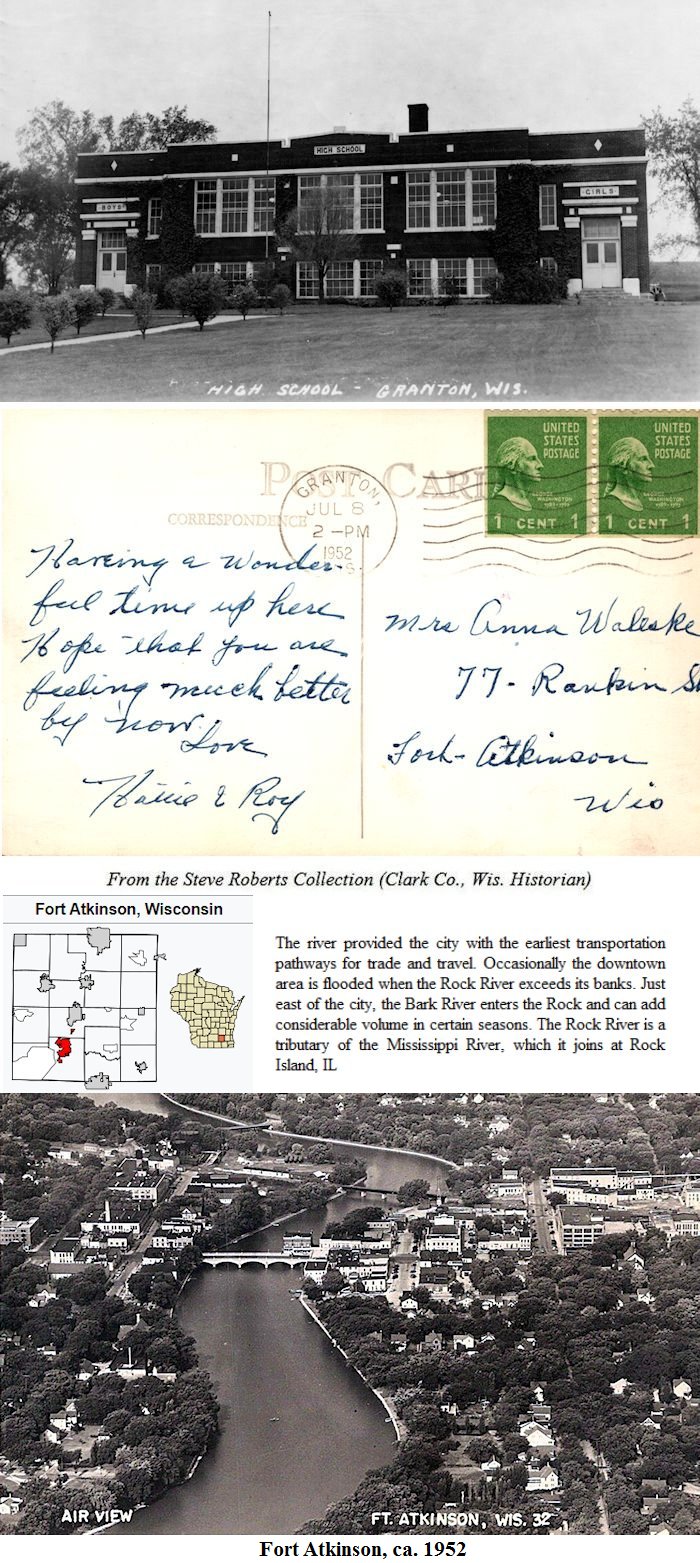 HIGH SCHOOL
BOYS
GIRLS
HIGH SCHOOL - GRANTON, WIS.
POST CARD
UNITED
STATES
POSTAGE
GEORGE
WASHINGTON
1 CENT 1
UNITED
STATES
POSTAGE
GEORGE
WASHINGTON
1 CENT 1
GRANTON,
JUL 8
2 - PM
1952
CORRESPONDENCE
Having a wonder-
ful time up here
Hope that you are
feeling much better
by now.
Love
Hattie & Roy
Mrs Anna Waleske
77 - Rankin St
Fort - Atkinson
Wis
From the Steve Roberts Collection (Clark Co., Wis. Historian)
Fort Atkinson, Wisconsin
The river provided the city with the earliest transportation
pathways for trade and travel. Occasionally the downtown
area is flooded when the Rock River exceeds its banks. Just
east of the city, the Bark River enters the Rock and can add
considerable volume in certain seasons. The Rock River is a
tributary of the Mississippi River, which it joins at Rock
Island, IL
AIR VIEW
FT. ATKINSON, WIS. 32
Fort Atkinson, ca. 1952